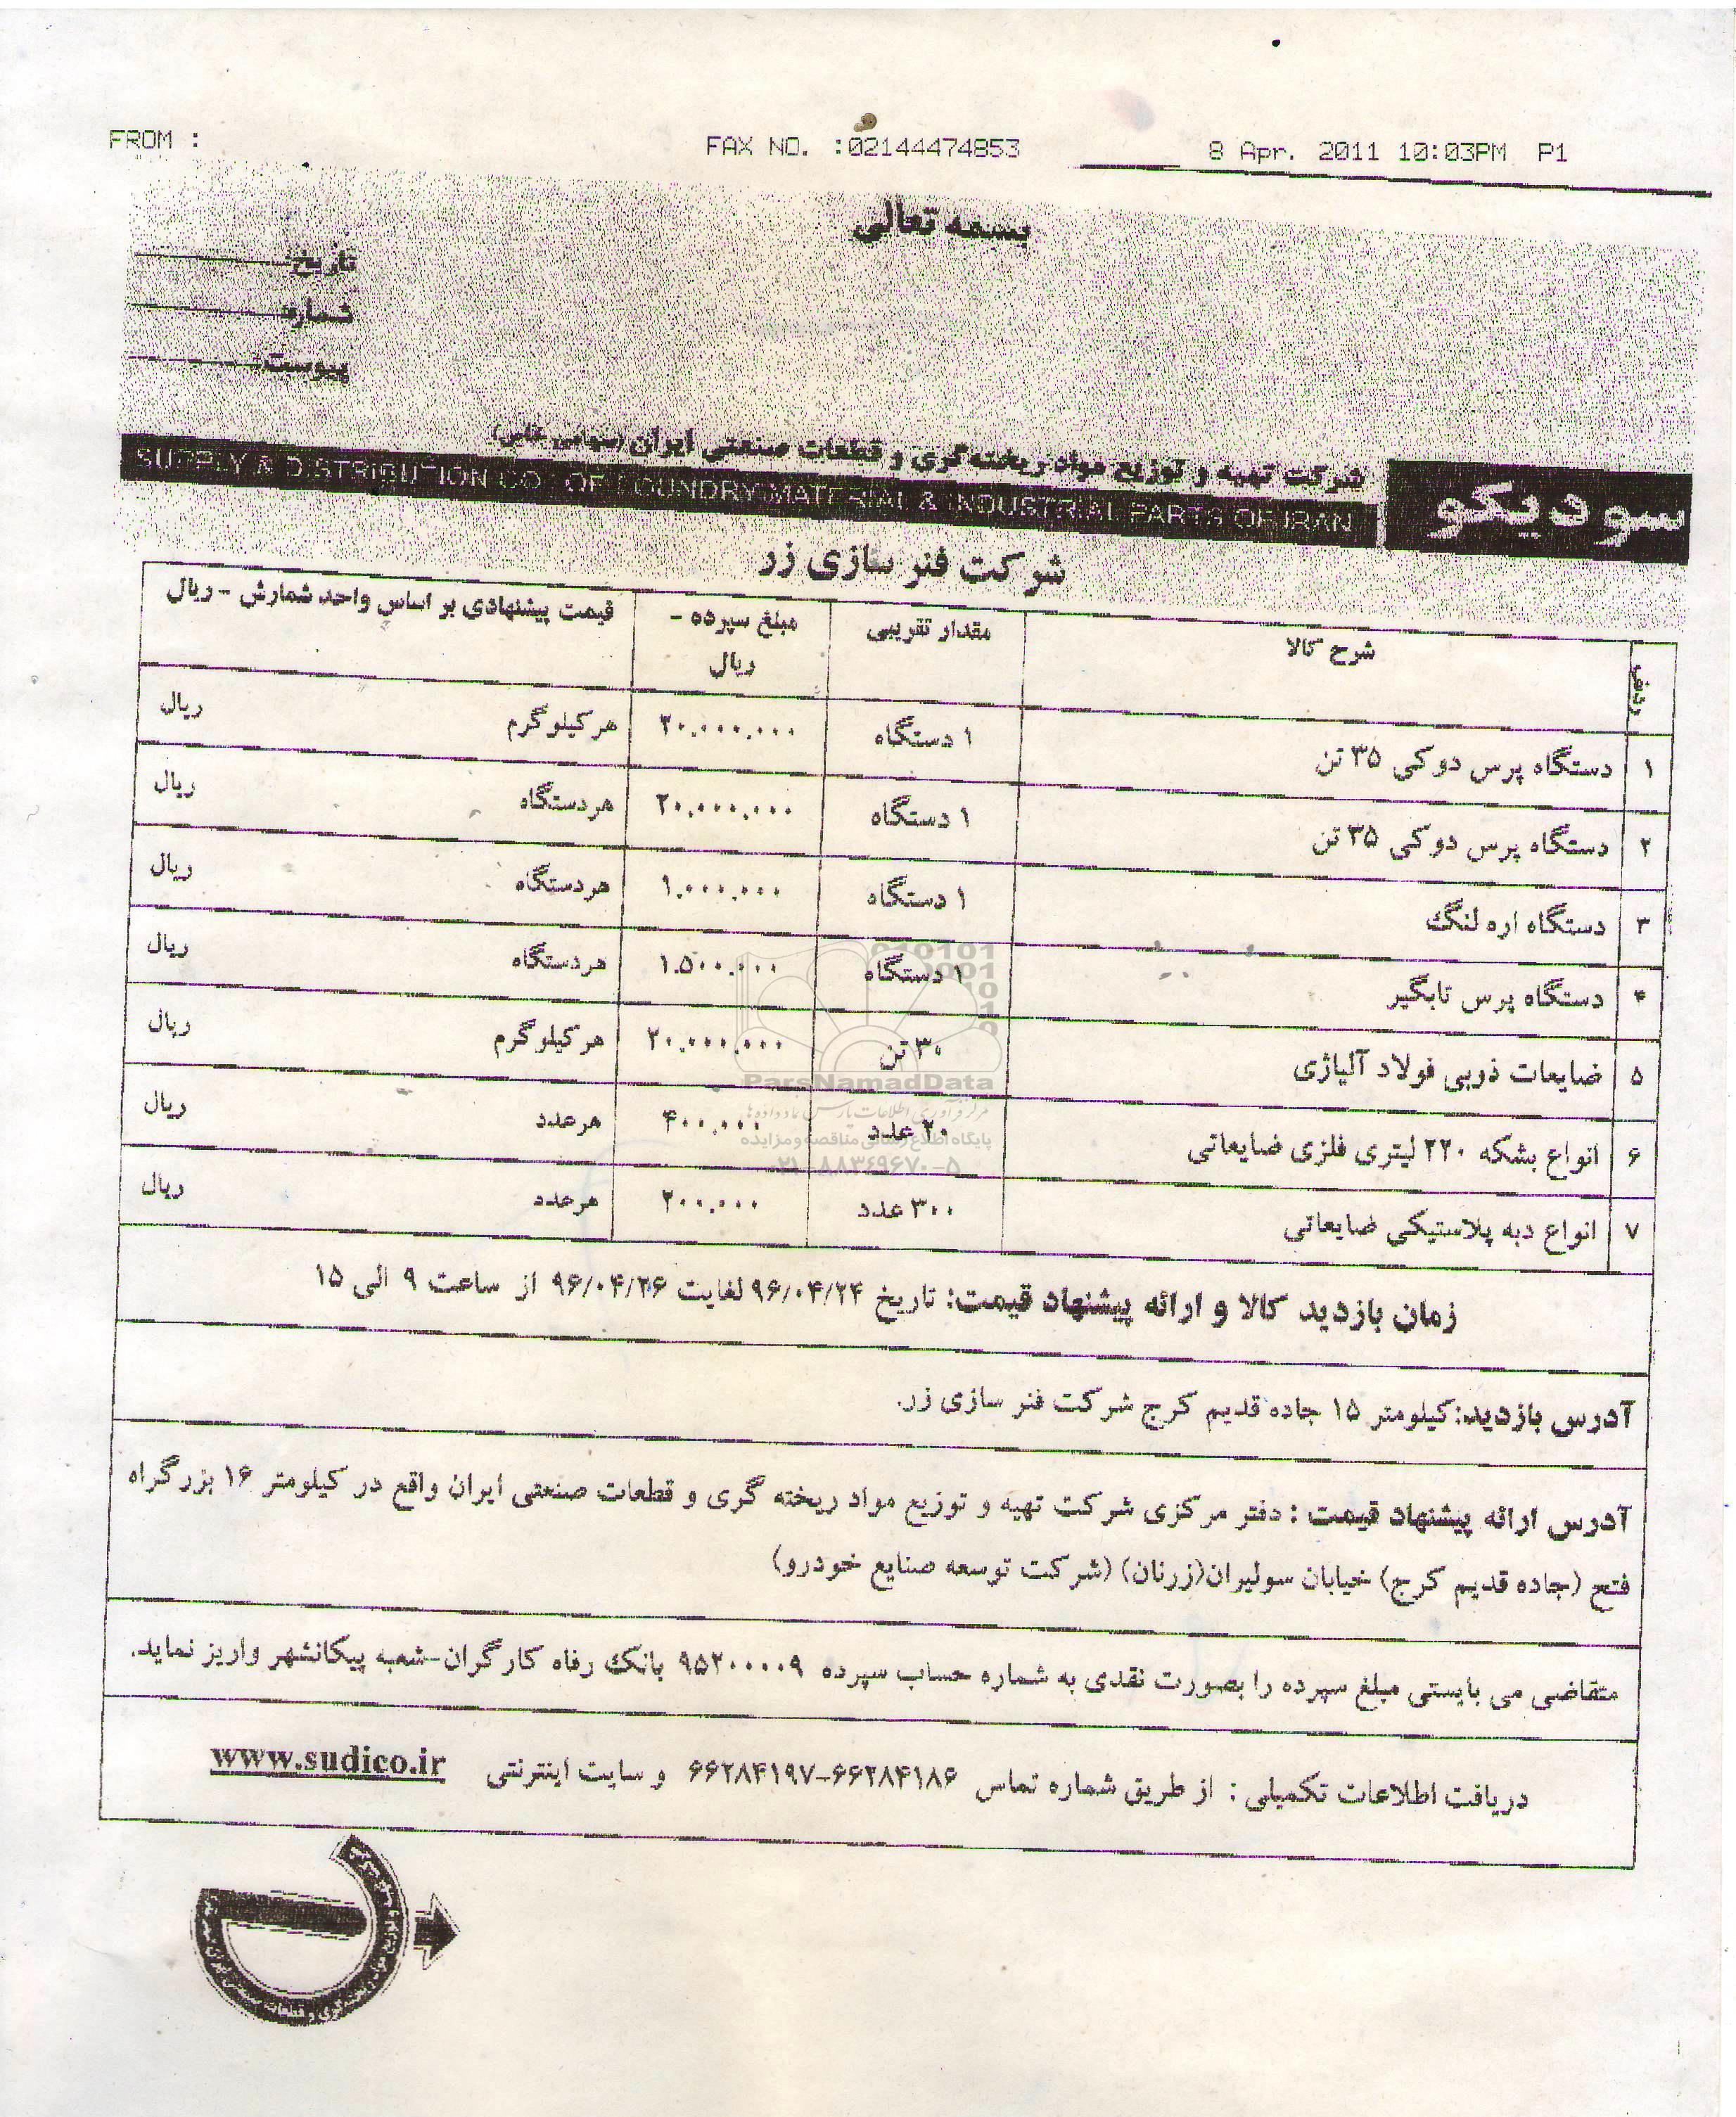 FROM :
FAX NO. :02144474853
8 Apr. 2011 10:03PM P1
بسمه تعالی
تاریخ:
شماره:
پیوست:
شرکت تهیه و توزیع مواد ریخته گری و قطعات صنعتی ایران (سهامی خاص)
سودیکو
SUPPLY & DISTRIBUTION CO. OF FOUNDRY MATERIAL & INDUSTRIAL PARTS OF IRAN
شرکت فنر سازی زر
ردیف شرح کالا مقدار تقریبی مبلغ سپرده - ریال قیمت پیشنهادی بر اساس واحد شمارش - ریال
۱ دستگاه پرس دوکی ۳۵ تن ۱ دستگاه ۲۰.۰۰۰.۰۰۰ هر کیلوگرم ریال
۲ دستگاه پرس دوکی ۳۵ تن ۱ دستگاه ۲۰.۰۰۰.۰۰۰ هردستگاه ریال
۳ دستگاه اره لنگ ۱ دستگاه ۱.۰۰۰.۰۰۰ هردستگاه ریال
۴ دستگاه پرس تابگیر ۱ دستگاه ۱.۵۰۰.۰۰۰ هردستگاه ریال
۵ ضایعات ذوبی فولاد آلیاژی ۳۰ تن ۲۰.۰۰۰.۰۰۰ هر کیلوگرم ریال
۶ انواع بشکه ۲۲۰ لیتری فلزی ضایعاتی ۲۰ عدد ۴۰۰.۰۰۰ هرعدد ریال
۷ انواع دبه پلاستیکی ضایعاتی ۳۰۰ عدد ۲۰۰.۰۰۰ هرعدد ریال
زمان بازدید کالا و ارائه پیشنهاد قیمت: تاریخ ۹۶/۰۴/۲۴ لغایت ۹۶/۰۴/۲۶ از ساعت ۹ الی ۱۵
آدرس بازدید: کیلومتر ۱۵ جاده قدیم کرج شرکت فنر سازی زر.
آدرس ارائه پیشنهاد قیمت : دفتر مرکزی شرکت تهیه و توزیع مواد ریخته گری و قطعات صنعتی ایران واقع در کیلومتر ۱۶ بزرگراه
فتح (جاده قدیم کرج) خیابان سولیران(زرنان) (شرکت توسعه صنایع خودرو)
متقاضی می بایستی مبلغ سپرده را بصورت نقدی به شماره حساب سپرده ۹۵۲۰۰۰۰۹ بانک رفاه کارگران-شعبه پیکانشهر واریز نماید.
دریافت اطلاعات تکمیلی : از طریق شماره تماس ۶۶۲۸۴۱۸۶-۶۶۲۸۴۱۹۷ و سایت اینترنتی www.sudico.ir
ParsNamadData
پایگاه اطلاع رسانی مناقصه و مزایده
۰۲۱-۸۸۳۴۹۶۷۰-۵